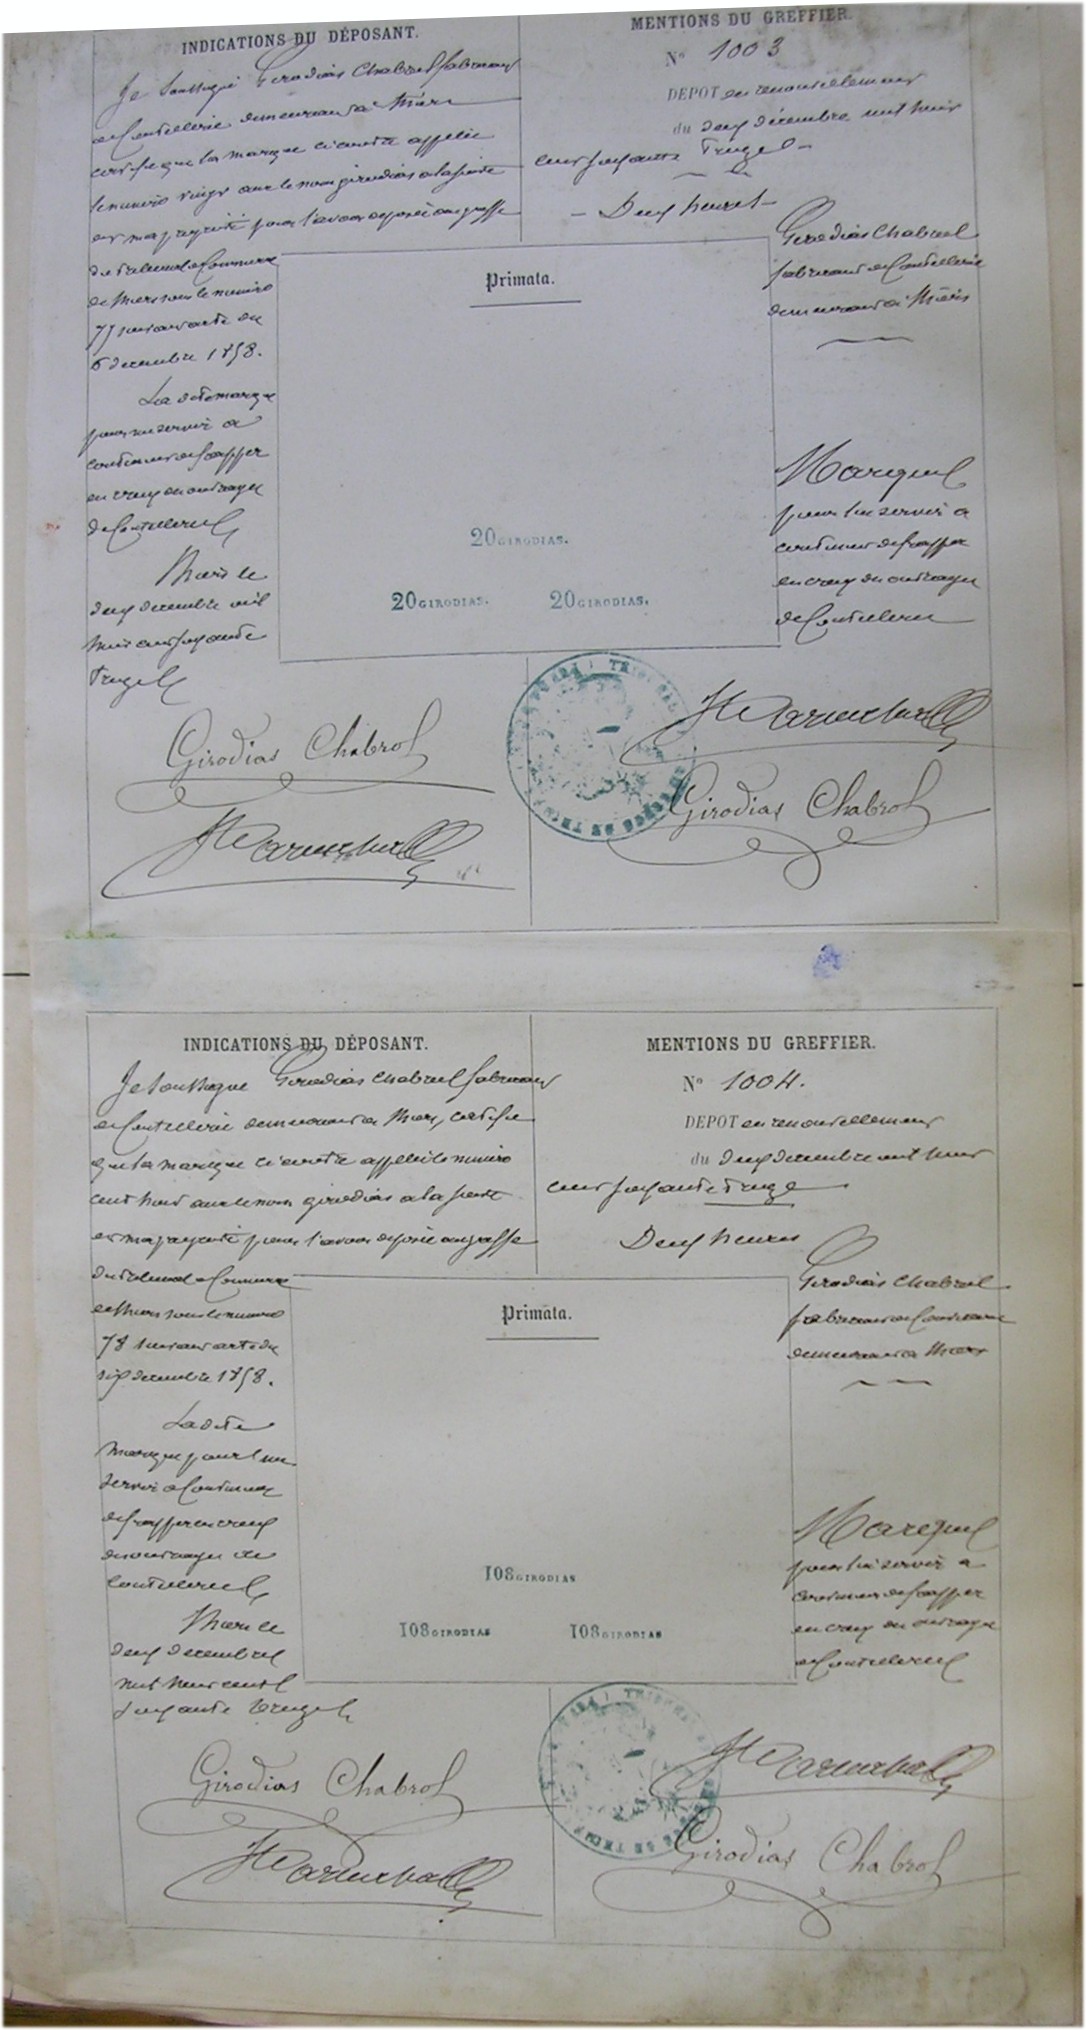 INDICATIONS DU DÉPOSANT.
Je soussigné Girodias Chabrol fabricant
de Coutellerie demeurant à Thiers
certifie que la marque ci contre appelée
le numéro vingt avec le nom girodias à la suite
est ma propriété pour l'avoir déposée au greffe
du Tribunal de Commerce
de Thiers sous le numéro
77 suivant acte du
6 décembre 1858.
La dite marque
pour me servir à
continuer de frapper
en creux des ouvrages
de Coutellerie
Thiers le
deux décembre mil
huit cent soixante
treize
Girodias Chabrol
MENTIONS DU GREFFIER.
No 1003
DEPOT en renouvellement
du deux décembre mil huit
cent soixante treize
Deux heures
Girodias Chabrol
fabricant de Coutellerie
demeurant à Thiers
Marque
pour lui servir à
continuer de frapper
en creux des ouvrages
de Coutellerie
Girodias Chabrol
Primata.
20 GIRODIAS.
20 GIRODIAS. 20 GIRODIAS.
TRIBUNAL
INDICATIONS DU DÉPOSANT.
Je soussigné Girodias Chabrol fabricant
de Coutellerie demeurant à Thiers, certifie
que la marque ci contre appelée le numéro
cent huit avec le nom girodias à la suite
est ma propriété pour l'avoir déposée au greffe
du Tribunal de Commerce
de Thiers sous le numéro
78 suivant acte du
six décembre 1858.
La dite
marque pour me
servir à continuer
de frapper en creux
des ouvrages de
Coutellerie
Thiers le
deux décembre
mil huit cent
soixante treize
Girodias Chabrol
MENTIONS DU GREFFIER.
No 1004.
DEPOT en renouvellement
du deux décembre mil huit
cent soixante treize
Deux heures
Girodias Chabrol
fabricant de Coutellerie
demeurant à Thiers
Marque
pour lui servir à
continuer de frapper
en creux des ouvrages
de Coutellerie
Girodias Chabrol
Primata.
108 GIRODIAS
108 GIRODIAS 108 GIRODIAS
TRIBUNAL